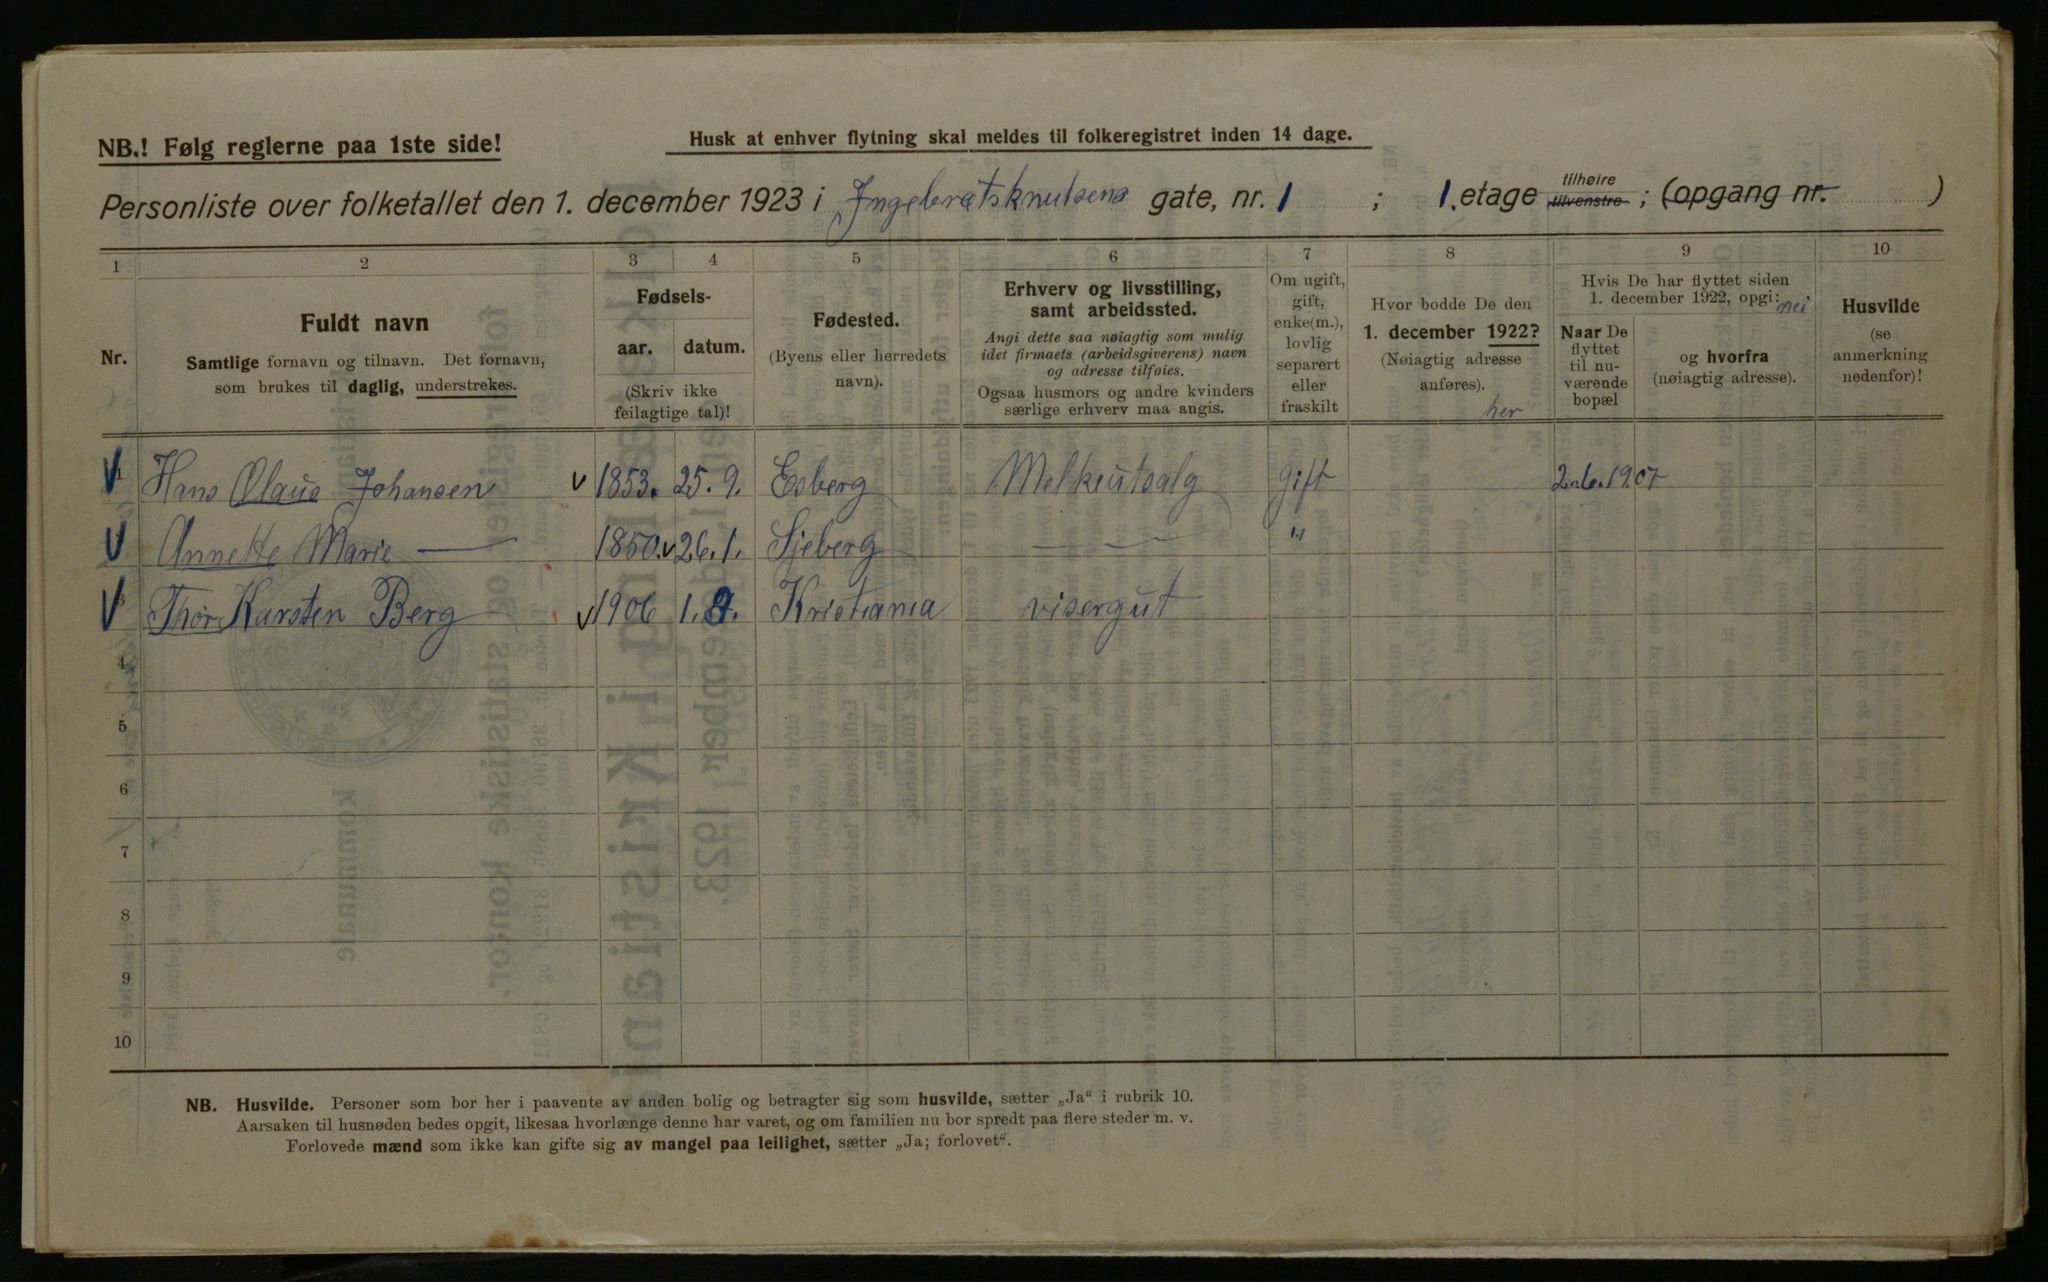 NB.! Følg reglerne paa 1ste side!
Husk at enhver flytning skal meldes til folkeregistret inden 14 dage.
Personliste over folketallet den 1. december 1923 i Ingebretsknutsens gate, nr. 1 ; 1. etage tilhøire tilvenstre ; (opgang nr. )
1 2 3 4 5 6 7 8 9 10
Nr.
Fuldt navn
Samtlige fornavn og tilnavn. Det fornavn,
som brukes til daglig, understrekes.
Fødsels-
aar. datum.
(Skriv ikke
feilagtige tal)!
Fødested.
(Byens eller herredets
navn).
Erhverv og livsstilling,
samt arbeidssted.
Angi dette saa nøiagtig som mulig
idet firmaets (arbeidsgiverens) navn
og adresse tilføies.
Ogsaa husmors og andre kvinders
særlige erhverv maa angis.
Om ugift,
gift,
enke(m.),
lovlig
separert
eller
fraskilt
Hvor bodde De den
1. december 1922?
(Nøiagtig adresse
anføres).
her
Hvis De har flyttet siden
1. december 1922, opgi: nei
Naar De
flyttet
til nu-
værende
bopæl
og hvorfra
(nøiagtig adresse).
Husvilde
(se
anmerkning
nedenfor)!
1 Hans Olaus Johansen v 1853. 25. 9. Esberg Melkeutsalg gift 2.6.1907
Annette Marie — 1850. v 26. 1. Sjeberg — — "
3 Thor Karsten Berg v 1906 1. 9. Kristiania visergut
4
5
6
7
8
9
10
NB. Husvilde. Personer som bor her i paavente av anden bolig og betragter sig som husvilde, sætter „Ja" i rubrik 10.
Aarsaken til husnøden bedes opgit, likesaa hvorlænge denne har varet, og om familien nu bor spredt paa flere steder m. v.
Forlovede mænd som ikke kan gifte sig av mangel paa leilighet, sætter „Ja; forlovet".